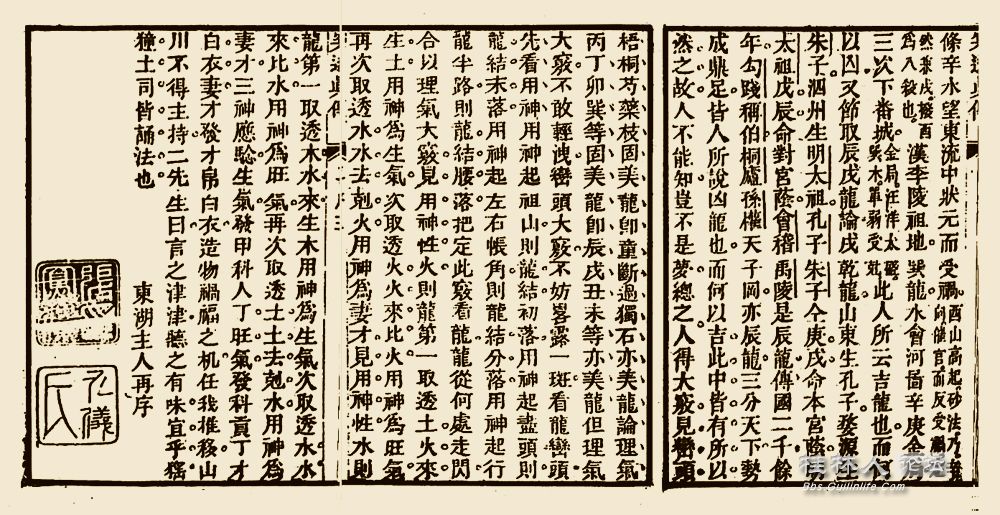 條辛水望東流中狀元而受禍
三次下番城
漢李陵祖地巽龍水會河啚辛庚金
此人所云吉龍也而
以凶又節取辰戌龍論戌乾龍山東生孔子婺源
朱子泗州生明太祖孔子朱子全庚戌命本宮蔭
太祖戊辰命對宮蔭會稽禹陵是辰龍傳國二千餘
年勾踐稱伯桐廬孫權天子岡亦辰龍三分天下勢
成鼎足皆人所說凶龍也而何以吉此中皆有所以
然之故人不能知豈不是夢總之人得大竅見巒頭
梧桐芍藥枝固美龍卽童斷過獨石亦美龍論理氣
丙丁卯巽等固美龍卽辰戌丑未等亦美龍但理氣
大竅不敢輕洩巒頭大竅不妨畧露一斑看龍巒頭
先看用神用神起祖山則龍結初落用神起盡頭則
龍結末落用神起左右帳角則龍結分落用神起行
龍半路則龍結腰落把定此竅看龍龍從何處走閃
合以理氣大竅見用神性火則龍第一取透土火來
生土用神爲生氣次取透火火來比火用神爲旺氣
再次取透水水去剋火用神爲妻才見用神性水則
龍第一取透木水來生木用神爲生氣次取透水水
來比水用神爲旺氣再次取透土土去剋水用神爲
妻才三神應驗生氣發甲科人丁旺氣發科貢丁才
白衣妻才發才帛白衣造物禍福之机任我推移山
川不得主持二先生曰言之津津聽之有味宜乎猺
獞土司皆誦法也
東湖主人再序
桂林人
Bbs.Guilinlife.Com